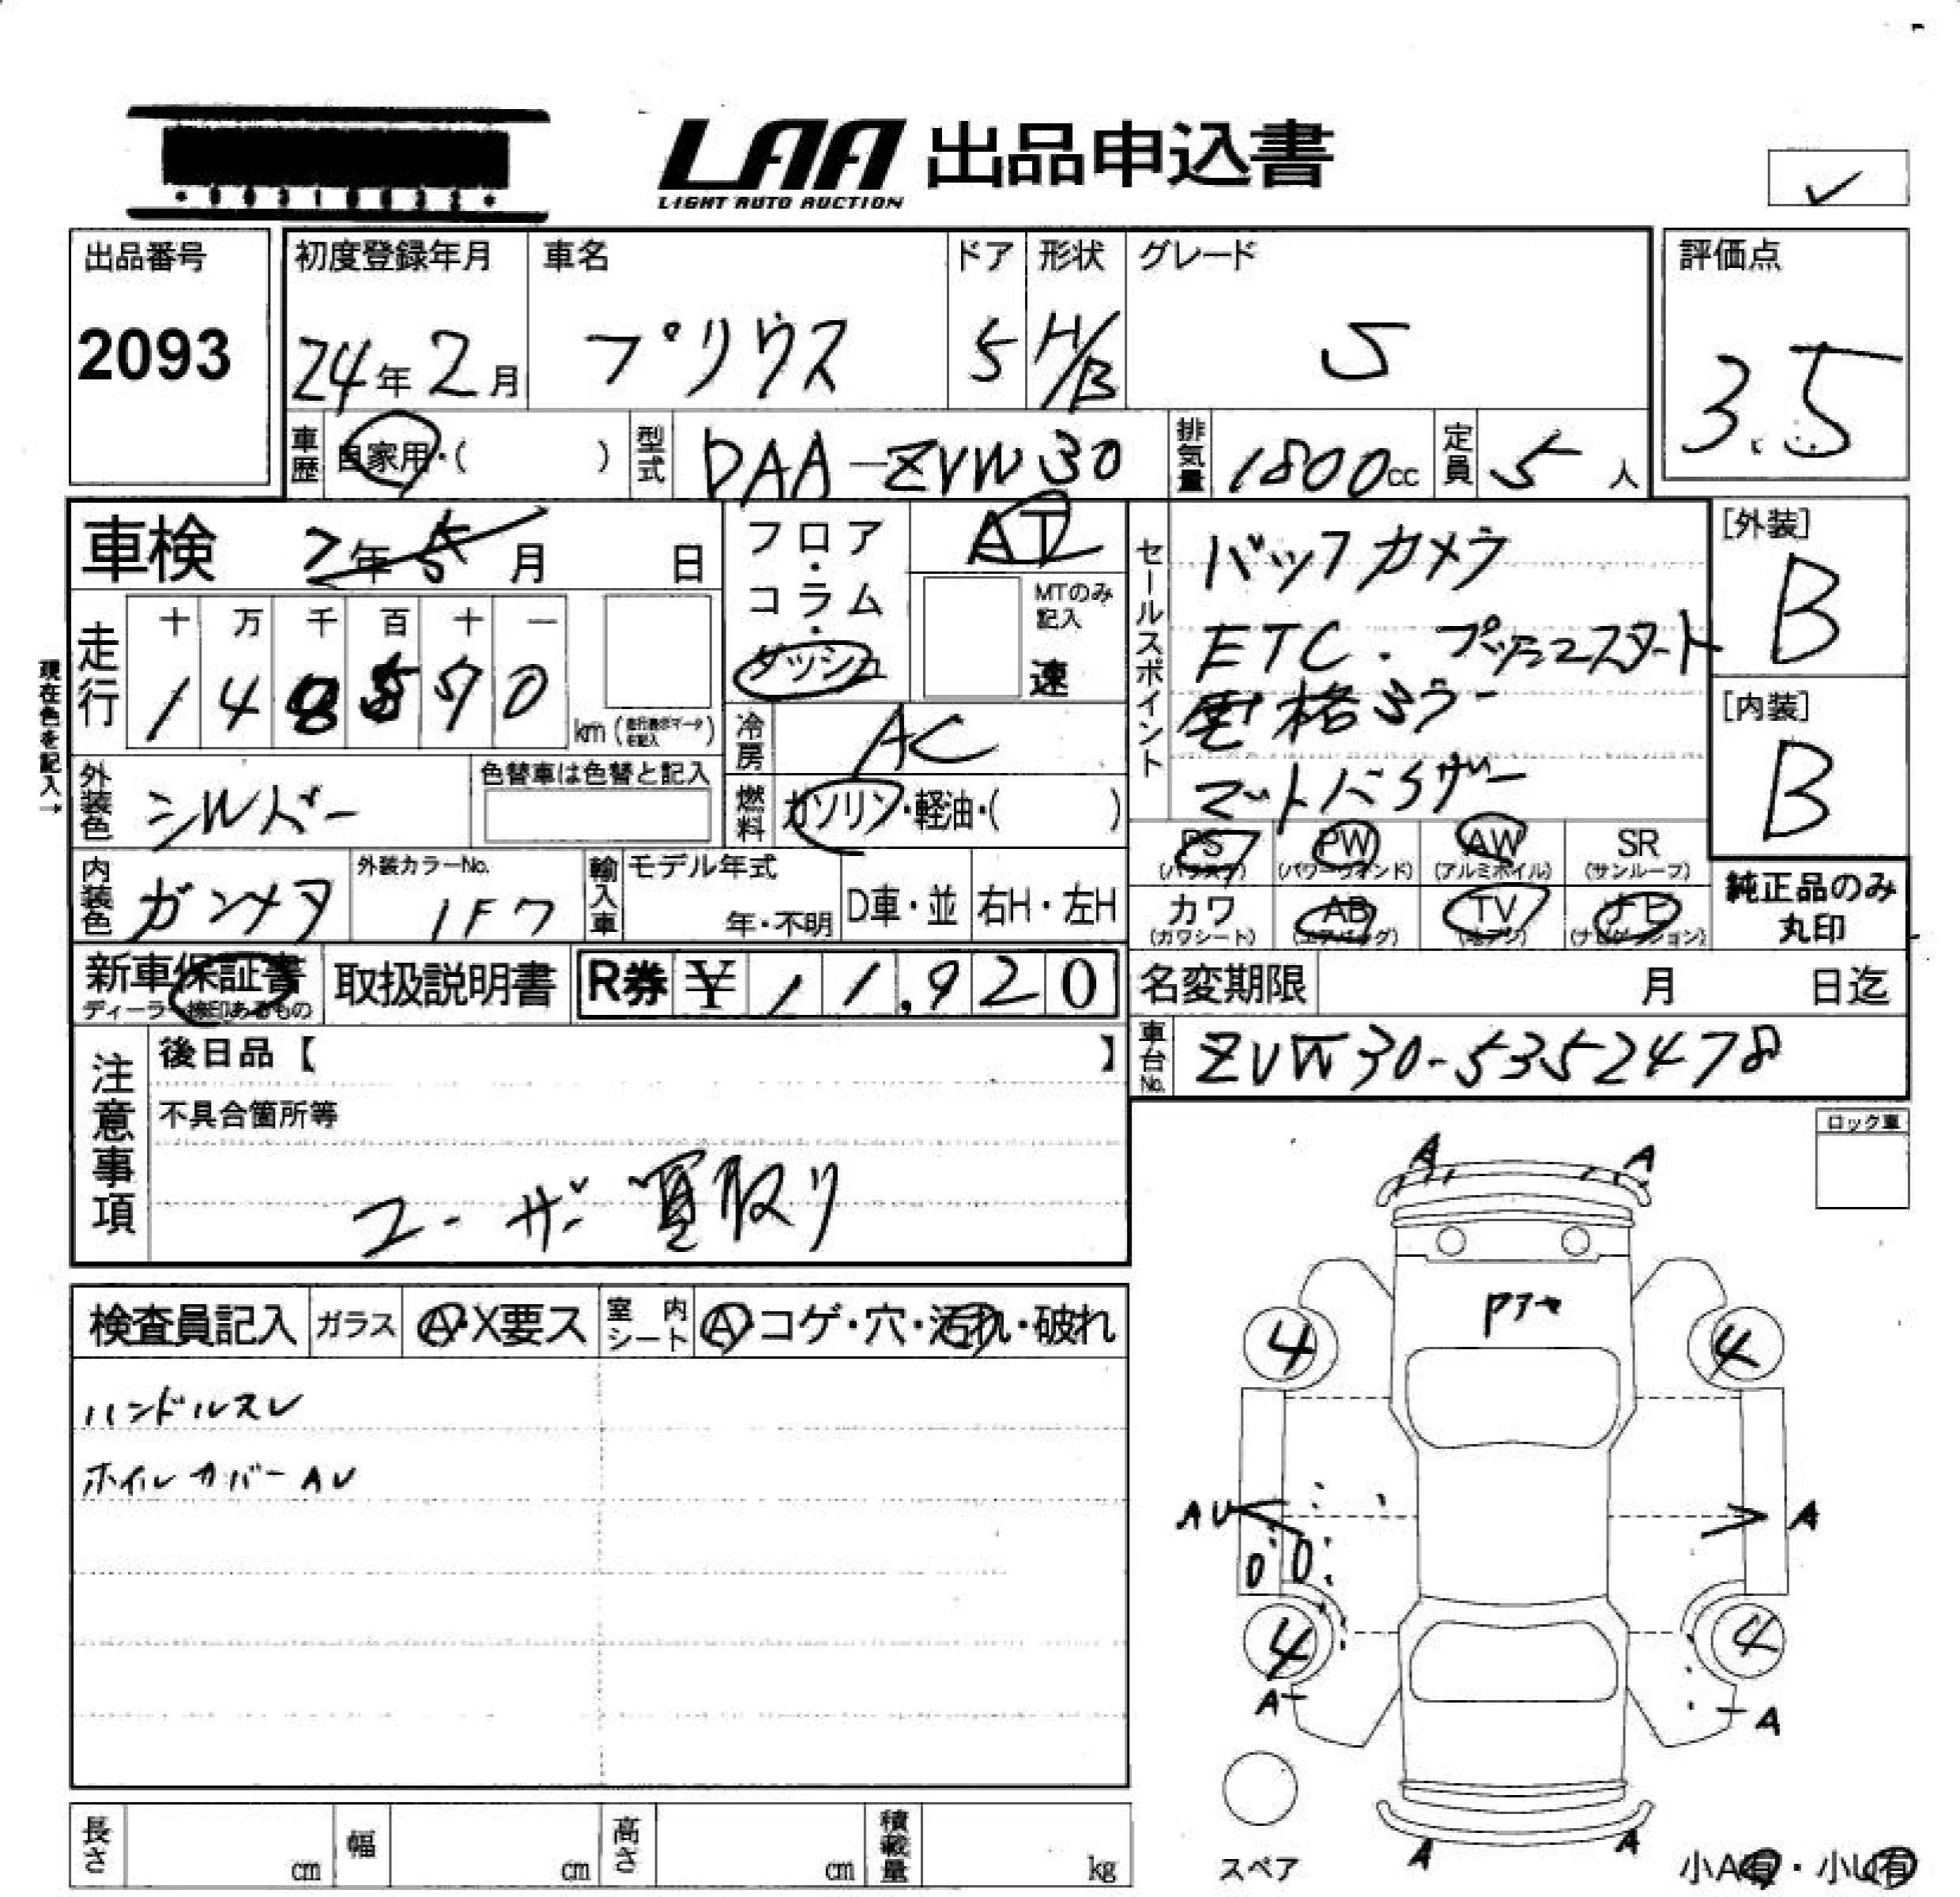 LAA 出品申込書
LIGHT AUTO AUCTION
✓
出品番号
2093
初度登録年月
24年2月
車名
プリウス
ドア
5
形状
H/B
グレード
S
評価点
3.5
車歴
自家用・( )
型式
DAA-ZVW30
排気量
1800cc
定員
5人
車検
7年5月 日
フロア・コラム・ダッシュ
AT
MTのみ記入
速
セールスポイント
バックカメラ
ETC・プッシュスタート
電格ミラー
マットバイザー
[外装]
B
[内装]
B
現在色を記入→
走行
十 万 千 百 十 一
1 4 8 5 70
km (走行表示マークを記入)
冷房
AC
外装色
シルバー
色替車は色替と記入
燃料
ガソリン・軽油・( )
PS
(パワステ)
PW
(パワーウインド)
AW
(アルミホイル)
SR
(サンルーフ)
内装色
ガンメタ
外装カラーNo.
1F7
輸入車
モデル年式
年・不明
D車・並
右H・左H
カワ
(カワシート)
AB
(エアバッグ)
TV
(地デジ)
ナビ
(ナビゲーション)
純正品のみ
丸印
新車保証書
ディーラー捺印あるもの
取扱説明書
R券 ¥ 11,920
名変期限
月 日迄
注意事項
後日品【 】
車台No.
ZVW30-5352478
不具合箇所等
ユーザー買取り
ロック車
検査員記入
ガラス
A・X要ス
室内シート
A・コゲ・穴・汚れ・破れ
ハンドルスレ
ホイルカバーAU
A A
4 4
AU A
4 4
A A
A A
スペア
小A有・小U有
長さ
cm
幅
cm
高さ
cm
積載量
kg